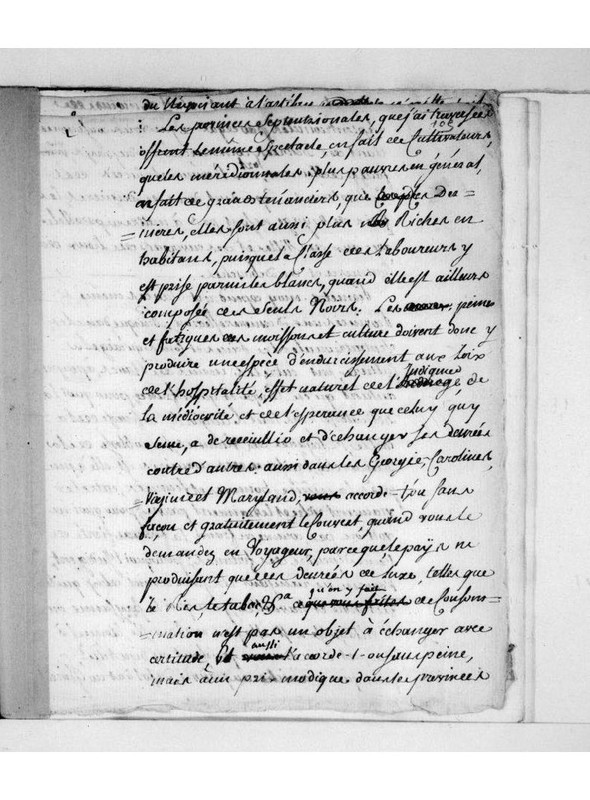 du Négociant à l'artisan
Les provinces Septentrionales, que j'ai traversées
offrent le même Spectacle, en fait de Cultivateurs,
que les méridionales; plus pauvres en général,
en fait de grands tenanciers, que ces Der=
=nieres, elles sont aussi plus Riches en
habitans, puisque la Classe des Laboureurs y
est prise parmi les blancs, quand elle est ailleurs
composée des seuls Noirs. Les peines
et fatigues des moissons et culture doivent donc y
produire une espece d'endurcissement aux Loix
de l'hospitalité, effet naturel de l'Indigence de
la médiocrité et de l'esperance que celuy qui y
seme, a de recueillir et d'échanger ses denrées
contre d'autres. aussi dans les Georgie, Carolines,
Virginie et Maryland, accorde-t'on sans
façon et gratuitement le Couvert, quand vous le
demandez en Voyageur, parce que le pays ne
produisant que des denrées de luxe, telles que
le Ris, le tabac &ca ce qu'on y fait de Consom=
=mation n'est pas un objet à échanger avec
certitude, Et aussi l'accorde-t-on sans peine,
mais à un prix modique dans les provinces